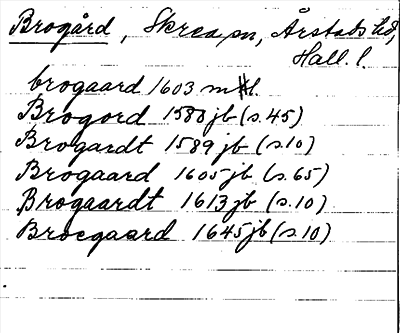 Brogård, Skrea sn, Årstads hd,
Hall. l.
brogaard 1603 mtl.
Brogord 1580 jb (s. 45)
Brogardt 1589 jb (s. 10)
Brogaard 1605 jb (s. 65)
Brogaardt 1613 jb (s. 10)
Brocgaard 1645 jb (s. 10)